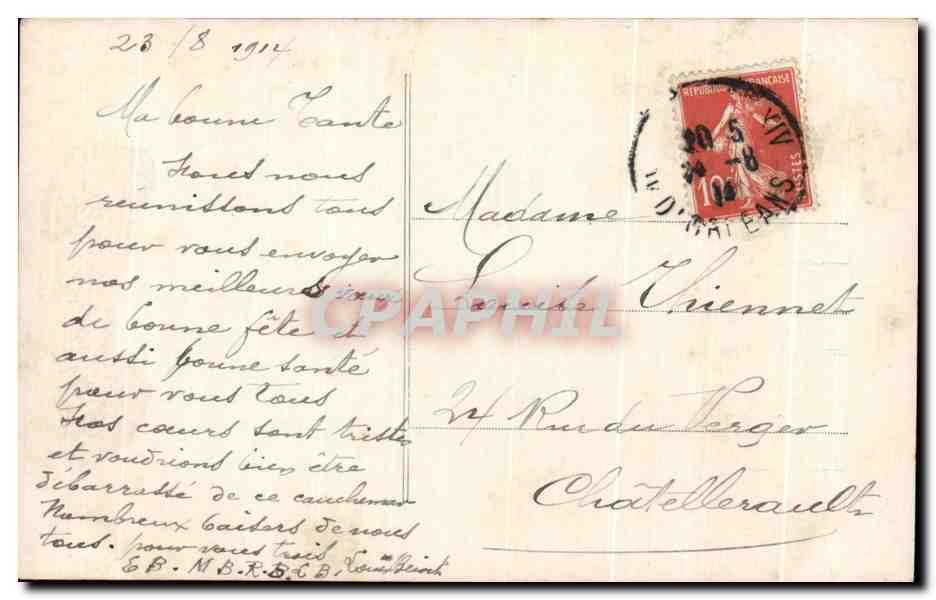 23/8 1914
Ma bonne Tante
Nous nous
réunissons tous
pour vous envoyer
nos meilleurs vœux
de bonne fête et
aussi bonne santé
pour vous tous
Nos cœurs sont tristes
et voudrions bien être
débarrassé de ce cauchemar
Nombreux baisers de nous
tous. pour vous trois
E B. M B. R. B. C B. Benoit
Madame
Louise Thiennet
24 Rue du Verger
Châtellerault
REPUBLIQUE FRANÇAISE
10
POSTES
XIV
20 5
24 -8
14
AV D'ORLEANS
CPAPHIL